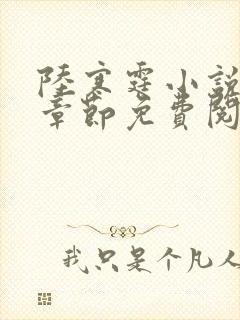 陸寒霆小說
章節免費閱
我只是个凡人